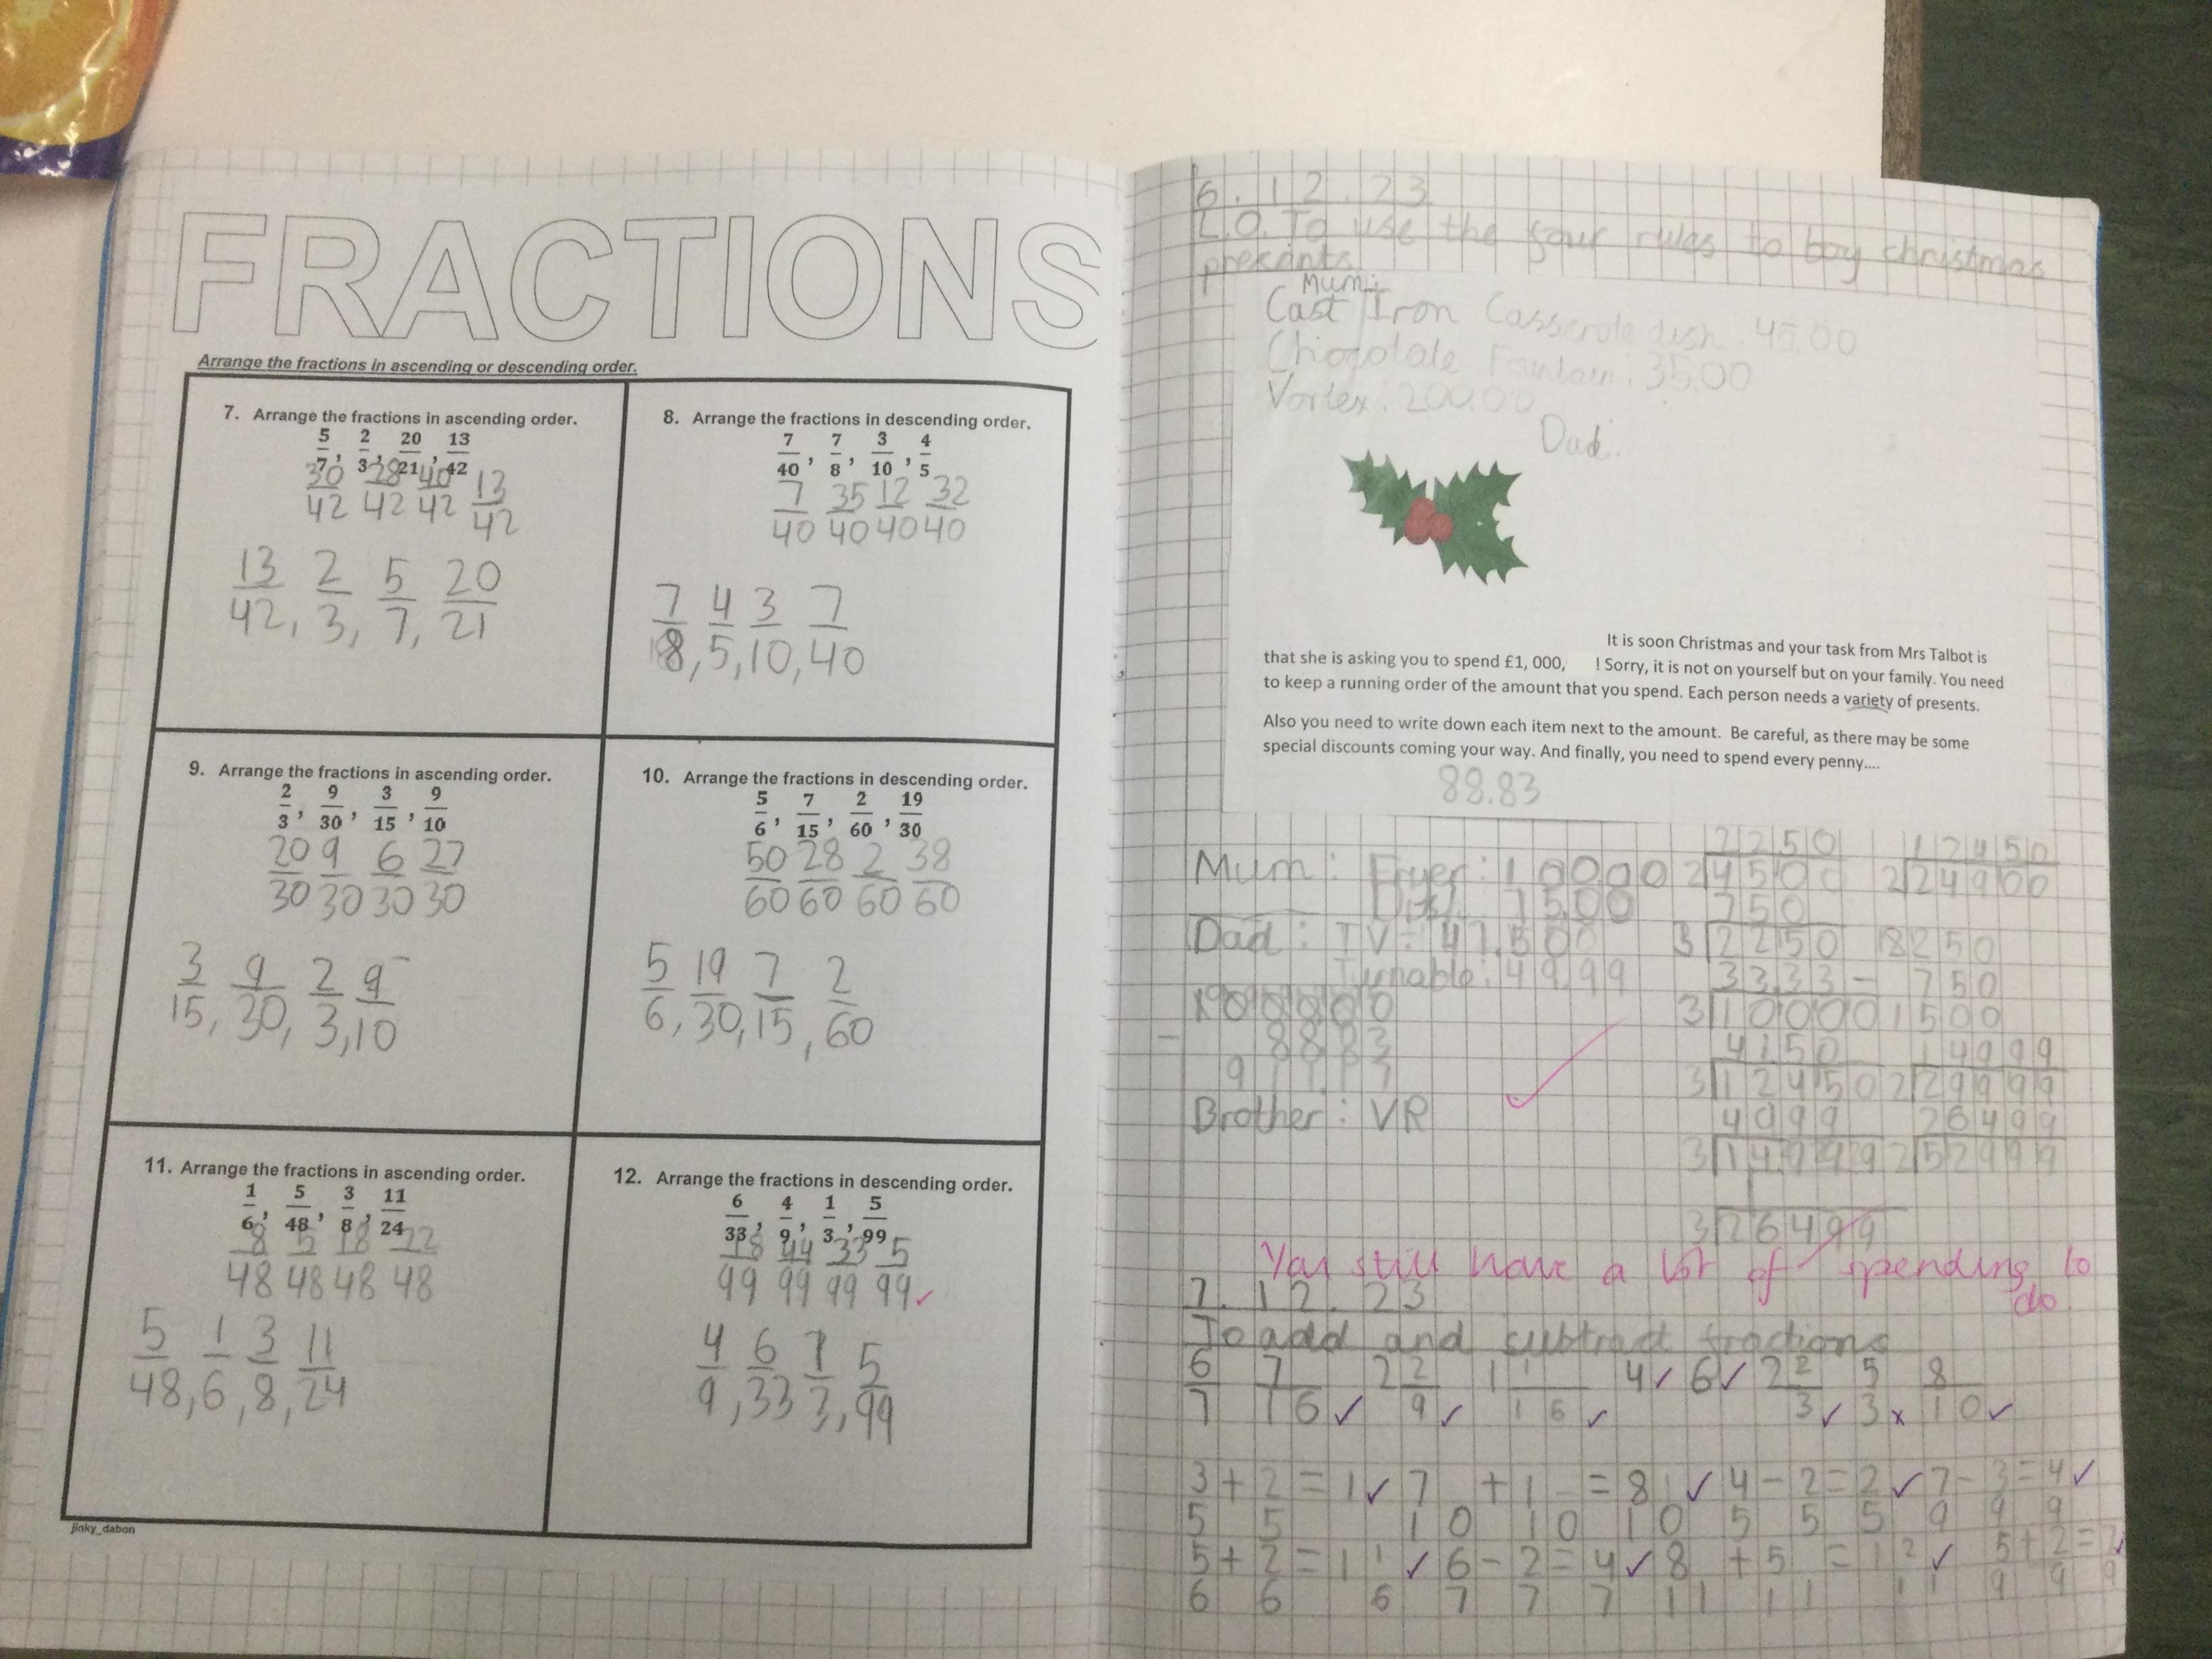 FRACTIONS
Arrange the fractions in ascending or descending order.
7. Arrange the fractions in ascending order.
5/7, 2/3, 20/21, 13/42
30/42 28/42 40/42 13/42
13/42, 2/3, 5/7, 20/21
8. Arrange the fractions in descending order.
7/40, 7/8, 3/10, 4/5
7/40 35/40 12/40 32/40
7/8, 4/5, 3/10, 7/40
9. Arrange the fractions in ascending order.
2/3, 9/30, 3/15, 9/10
20/30 9/30 6/30 27/30
3/15, 9/30, 2/3, 9/10
10. Arrange the fractions in descending order.
5/6, 7/15, 2/60, 19/30
50/60 28/60 2/60 38/60
5/6, 19/30, 7/15, 2/60
11. Arrange the fractions in ascending order.
1/6, 5/48, 3/8, 11/24
8/48 5/48 18/48 22/48
5/48, 1/6, 3/8, 11/24
12. Arrange the fractions in descending order.
6/33, 4/9, 1/3, 5/99
18/99 44/99 33/99 5/99 ✓
4/9, 6/33 1/3, 5/99
jinky_dabon
6.12.23
L.O. To use the four rules to boy christmas
presants
Mum:
Cast Iron Casserole dish: 45.00
Chiocolate Fountain: 35.00
Vortex: 200.00
Dad:
It is soon Christmas and your task from Mrs Talbot is
that she is asking you to spend £1, 000, ! Sorry, it is not on yourself but on your family. You need
to keep a running order of the amount that you spend. Each person needs a variety of presents.
Also you need to write down each item next to the amount. Be careful, as there may be some
special discounts coming your way. And finally, you need to spend every penny....
88.83
2250 12450
Mum: Fryer: 10000 2 4500 2 24900
15.00 750
Dad: TV: 47.500 3 2250 8250
Turnable: 49.99 33.33 = 750
3 10000 1500
8883 4150 14999
911.17 3 12450 2 29999
Brother: VR 4999 26499
3 14999 2 52999
3 26499
You still have a lot of spending to
do
7.12.23
To add and subtract fractions
6/7 7/16 ✓ 2 2/9 ✓ 1 1/16 ✓ 4 ✓ 6 ✓ 2 2/3 ✓ 5/3 x 8/10 ✓
3/5 + 2/5 = 1 ✓ 7/10 + 1/10 = 8/10 ✓ 4/5 - 2/5 = 2/5 ✓ 7/9 - 3/9 = 4/9 ✓
5/6 + 2/6 = 1 1/6 ✓ 6/7 - 2/7 = 4/7 ✓ 8/11 + 5/11 = 1 2/11 ✓ 5/9 + 2/9 = 7/9 ✓